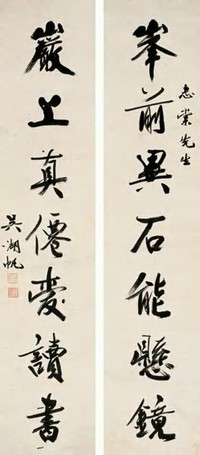 峯前異石能懸鏡
志棠先生
巖上真僊愛讀書
吳湖帆